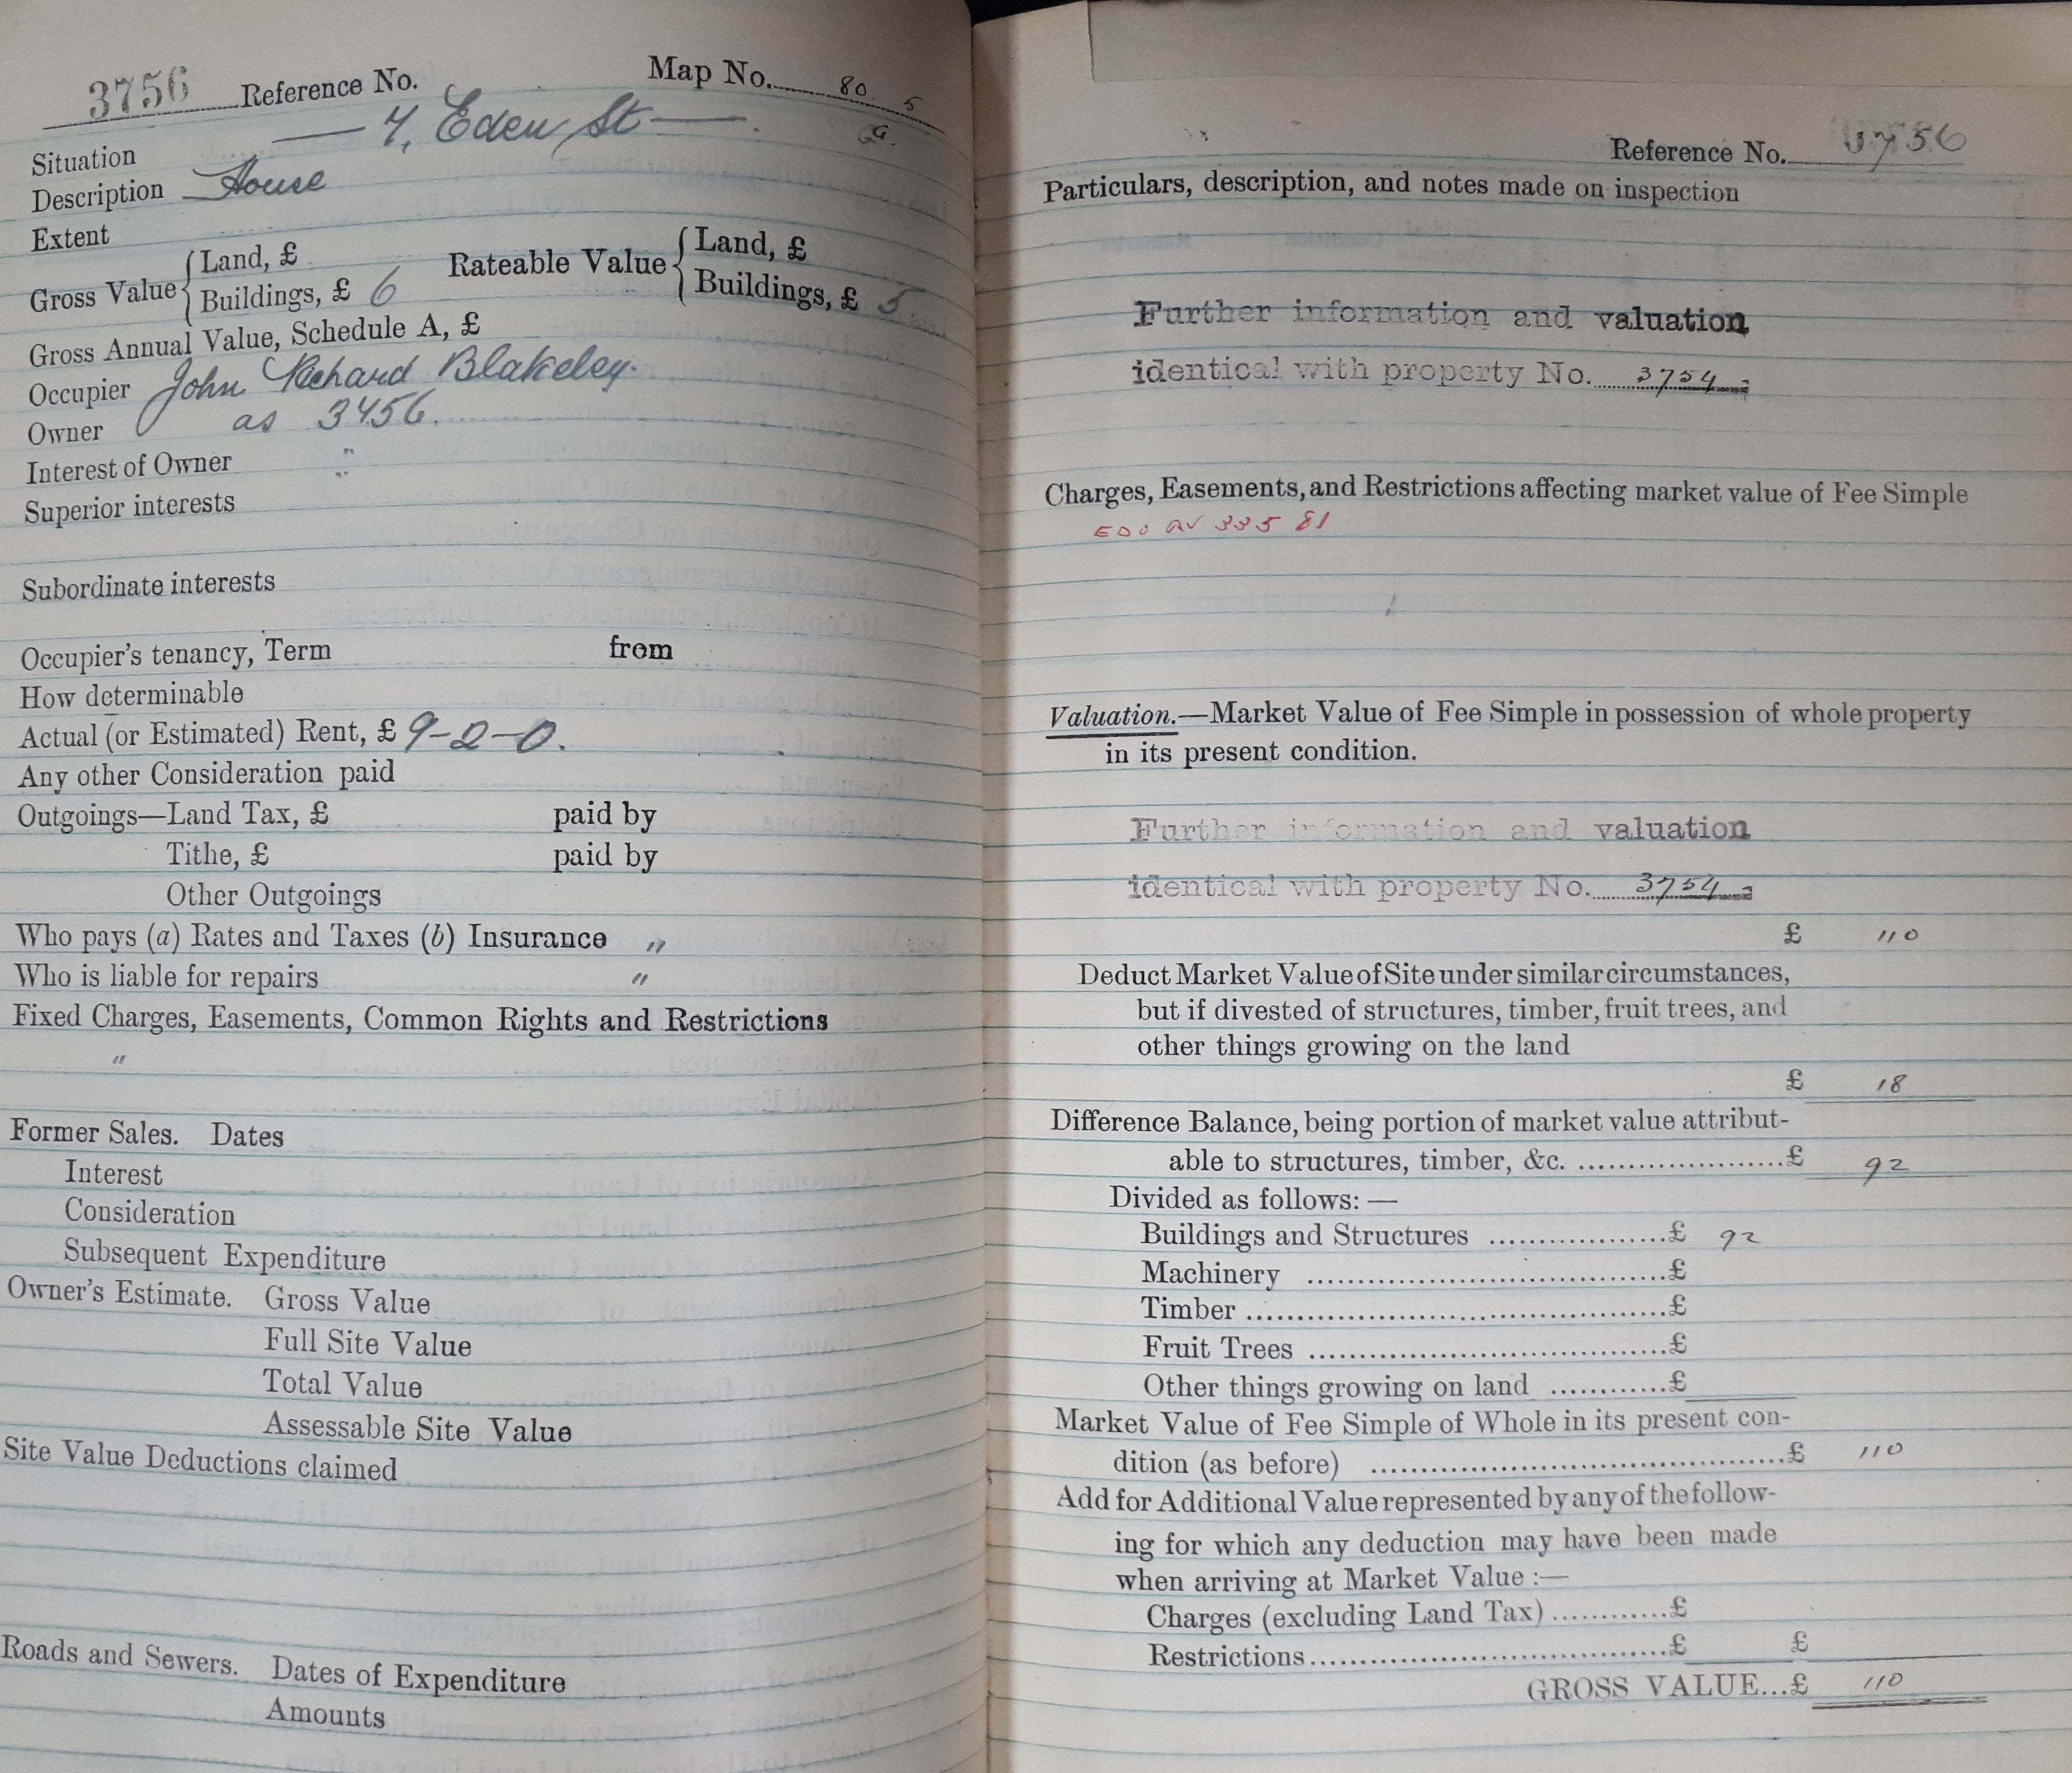 3756 Reference No. Map No. 80 5
G.
Situation — 7, Eden St —
Description House
Extent
Gross Value { Land, £ Rateable Value { Land, £
Buildings, £ 6 Buildings, £ 5
Gross Annual Value, Schedule A, £
Occupier John Richard Blakeley.
Owner as 3456.
Interest of Owner
Superior interests
Subordinate interests
Occupier's tenancy, Term from
How determinable
Actual (or Estimated) Rent, £ 9-2-0.
Any other Consideration paid
Outgoings—Land Tax, £ paid by
Tithe, £ paid by
Other Outgoings
Who pays (a) Rates and Taxes (b) Insurance "
Who is liable for repairs "
Fixed Charges, Easements, Common Rights and Restrictions
"
Former Sales. Dates
Interest
Consideration
Subsequent Expenditure
Owner's Estimate. Gross Value
Full Site Value
Total Value
Assessable Site Value
Site Value Deductions claimed
Roads and Sewers. Dates of Expenditure
Amounts
Reference No. 3756
Particulars, description, and notes made on inspection
Further information and valuation
identical with property No. 3754
Charges, Easements, and Restrictions affecting market value of Fee Simple
335 81
Valuation.—Market Value of Fee Simple in possession of whole property
in its present condition.
Further information and valuation
identical with property No. 3754
£ 110
Deduct Market Value of Site under similar circumstances,
but if divested of structures, timber, fruit trees, and
other things growing on the land
£ 18
Difference Balance, being portion of market value attribut-
able to structures, timber, &c. ..................... £ 92
Divided as follows: —
Buildings and Structures .................. £ 92
Machinery ..................................... £
Timber ........................................... £
Fruit Trees ..................................... £
Other things growing on land ............ £
Market Value of Fee Simple of Whole in its present con-
dition (as before) ........................................... £ 110
Add for Additional Value represented by any of the follow-
ing for which any deduction may have been made
when arriving at Market Value :—
Charges (excluding Land Tax) ............ £
Restrictions ...................................... £ £
GROSS VALUE... £ 110